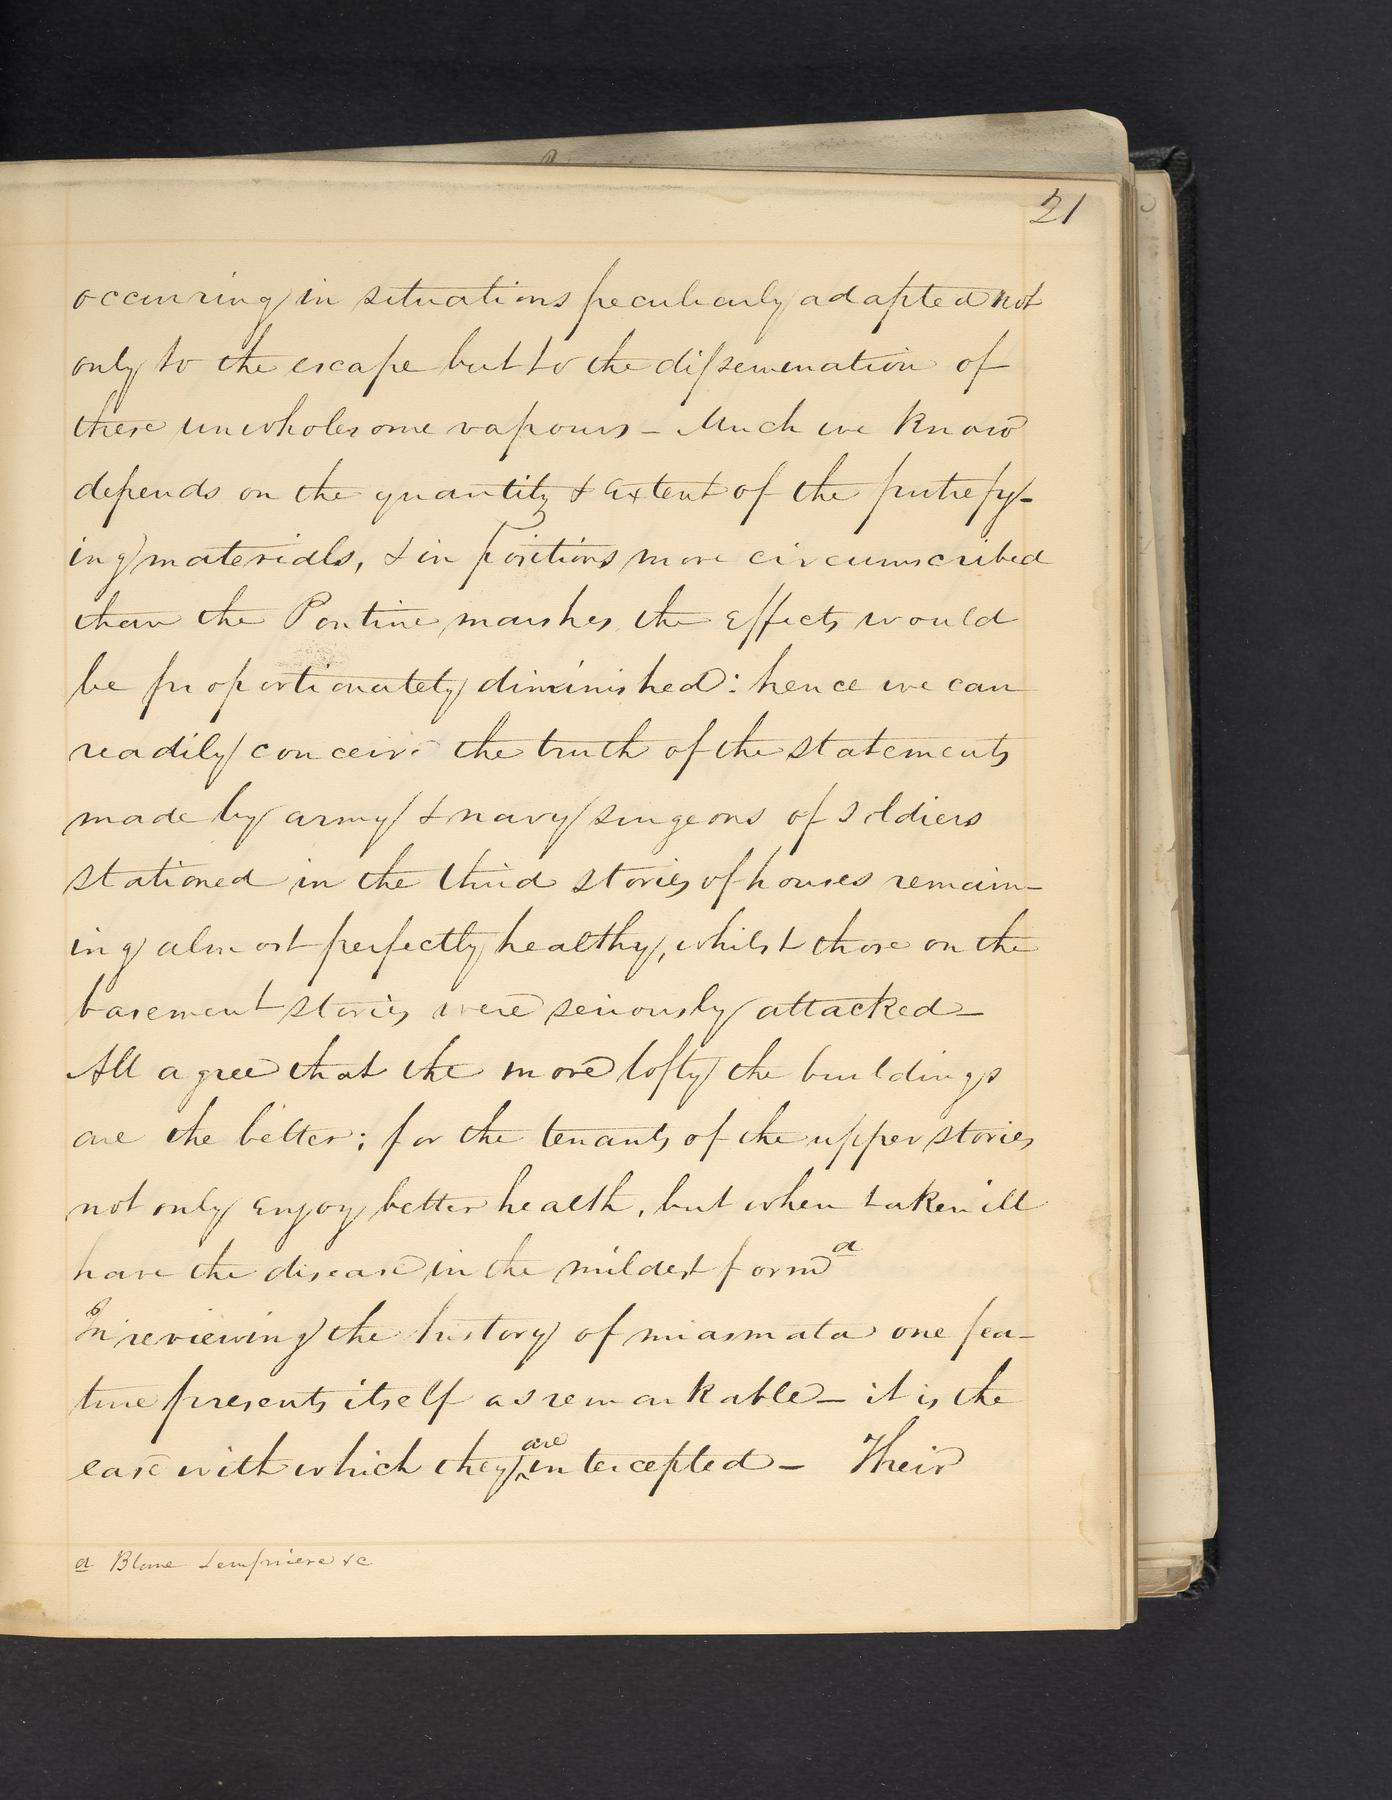 21
occurring in situations peculiarly adapted not
only to the escape but to the dissemination of
these unwholesome vapours - Much we know
depends on the quantity & extent of the putrefy-
ing materials, & in positions more circumscribed
than the Pontine marshes the effects would
be proportionately diminished: hence we can
readily conceive the truth of the statements
made by army & navy surgeons of soldiers
stationed in the third stories of houses remain-
ing almost perfectly healthy, whilst those on the
basement stories were seriously attacked -
All agree that the more lofty the buildings
are the better; for the tenants of the upper stories
not only enjoy better health, but when taken ill
have the disease in the mildest form a
In reviewing the history of miasmata one fea-
ture presents itself as remarkable - it is the
ease with which they are intercepted - Their
a Blane Lempriere &c